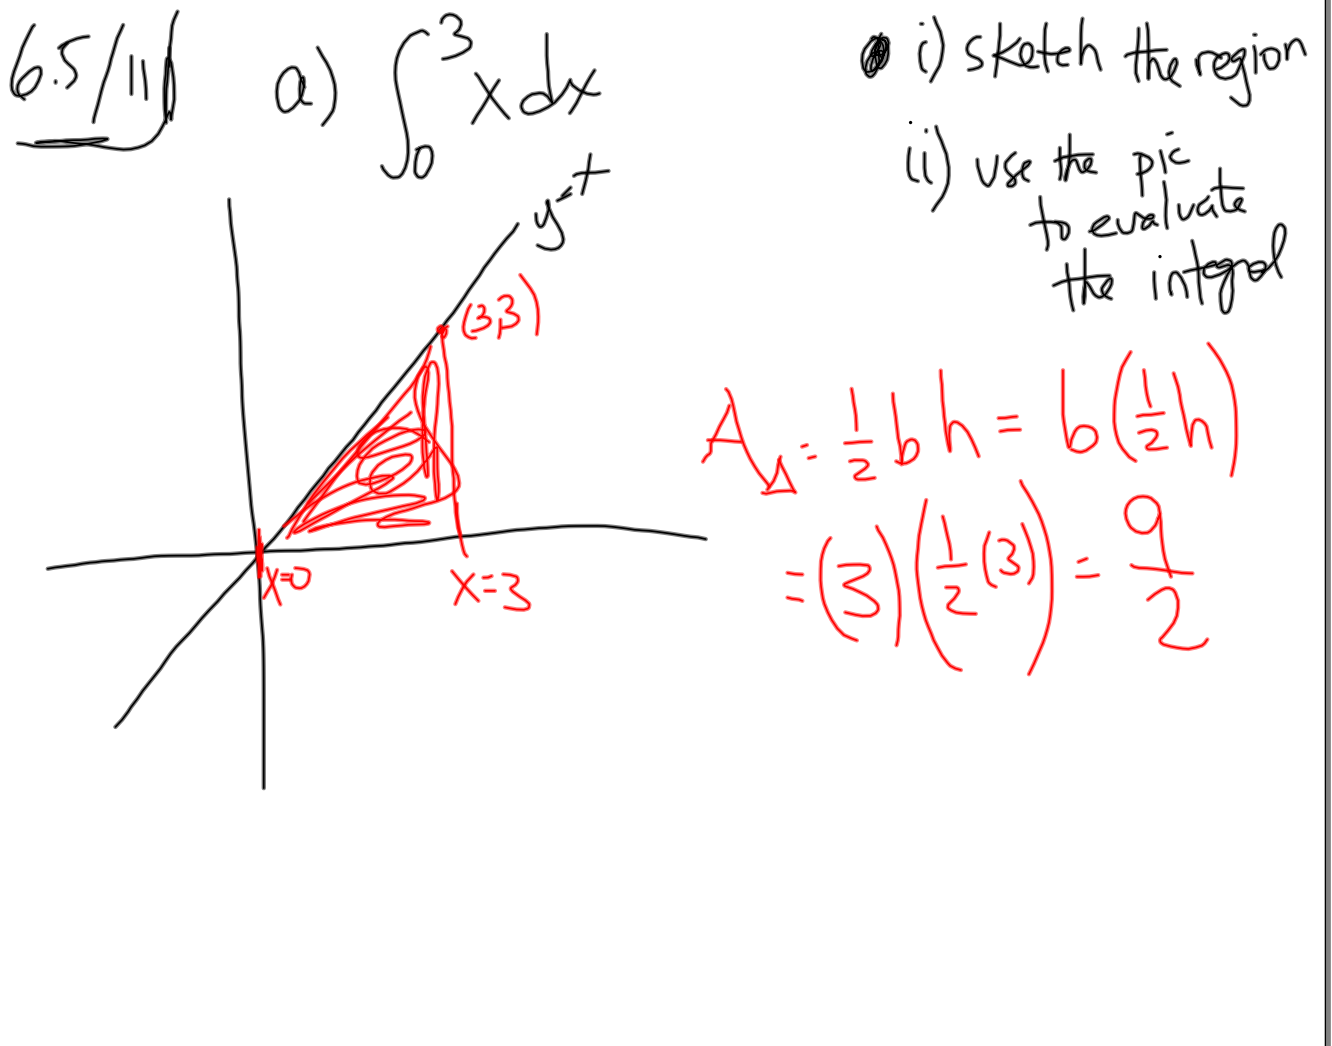 6.5/11
a) ∫₀³ x dx
i) sketch the region
ii) use the pic
to evaluate
the integral
y=x
(3,3)
x=0
x=3
A△ = 1/2 b h = b(1/2 h)
= (3)(1/2 (3)) = 9/2